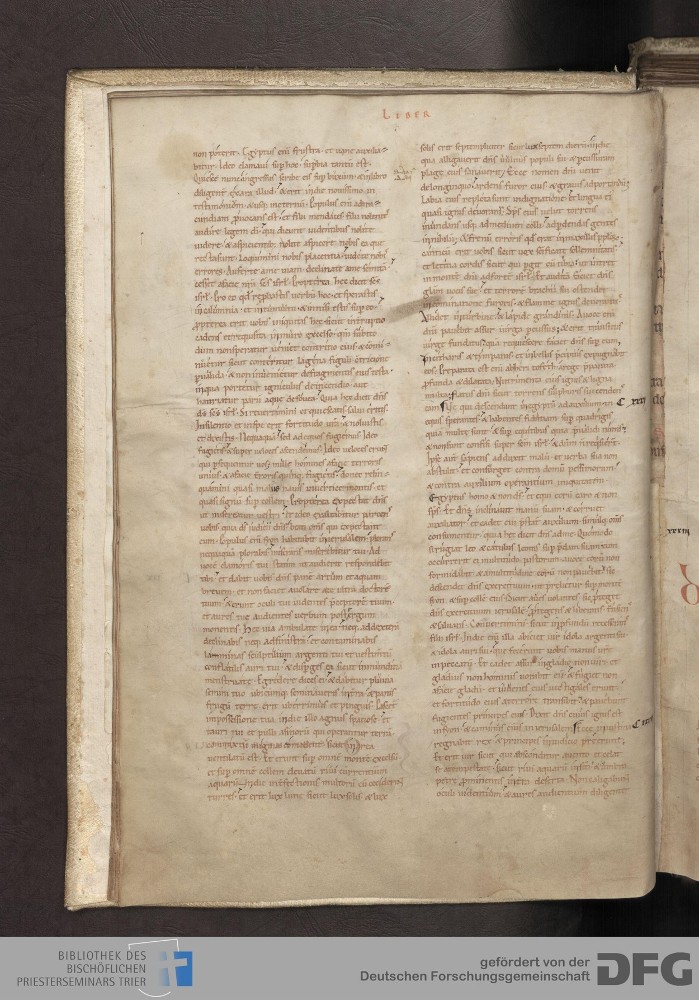 LIBER
non poterit. Egyptus eni frustra et vane auxilia-
bitur. Ideo clamavi sup hoc. supbia tantu est.
diligent exara illud. & erit in die novissimo in
testimonium
cundiam pvocans est. et filii mendaces. filii nolentes
audire legem di. qui dicunt videntibus nolite
videre. & aspicientib; nolite aspicere nobis ea que
recta sunt. Loquimini nobis placentia. videte nobis
errores. Auferte a me viam. declinate a me semita
cesset a facie nra scs isrl. Propterea hec dicit scs
isrl. Pro eo qd reprobastis verbu hoc. et sperastis
in calumnia. et in tumultu. & innixi estis sup eo.
ppterea erit vobis iniquitas hec sicut interruptio
cadens et requisita in muro excelso. qm subito
dum non speratur. veniet contritio eius. & comi-
nuetur sicut conteritur lagena figuli contritione
pvalida. & non invenietur de fragmentis eius testa
in qua portetur igniculus de incendio. aut
hauriatur paru aque de fovea. Quia hec dicit dns
ds scs isrl. Si revertamini et quiescatis salvi eritis.
In silentio et in spe erit fortitudo vra. & noluistis
et dixistis. Nequaquam sed ad equos fugiemus. Ideo
qui psequentur vos. mille homines a facie terroris
unius. & a facie terroris quinq; fugietis. donec relin-
quamini quasi malus navis in vertice montis. et
quasi signu sup collem. Propterea expectat dns
ut misereatur vestri. et ideo exaltabitur parcens
vobis. quia ds iudicii dns. beati oms qui expectant
eum. Populus eni syon habitabit in ierusalem. plorans
nequaqua plorabis. miserans miserebitur tui. Ad
voce clamoris tui statim ut audierit respondebit
tibi. et dabit vobis dns pane artum et aquam
brevem. et non faciet avolare a te ultra doctore
tuum. & erunt oculi tui videntes preceptore tuum.
et aures tue audient verbum post tergum
monentis. Hec via ambulate in ea. neq; ad dextera
neq; ad sinistra. et contaminabis
laminas sculptilium argenti tui. et vestimtu
conflatilis auri tui. & disperges ea sicut inmundicia
menstruate. Egredere dices ei. & dabitur pluvia
semini tuo ubicumq; seminaveris in terra. & panis
frugu terre erit uberrimus et pinguis. Pascet
in possessione tua in die illo agnus spaciose. et
tauri tui et pulli asinoru qui operantur terra
commixtu migma comedent sicut in area
ventilatu est. Et erunt sup omne monte excelsu.
et sup omne collem elevatu rivi currentium
aquaru. in die interfectionis multoru cu ceciderint
turres. et erit lux lune sicut lux solis. & lux
solis erit septempliciter sicut lux septem dieru. in die
qua alligaverit dns vulnus populi sui. & pcussuram
plage eius sanaverit. Ecce nomen dni venit
de longinquo. ardens furor eius. & gravis ad portandu.
Labia eius repleta sunt indignatione. et lingua ei
quasi ignis devorans. Sps eius velut torrens
inundans usq; ad mediu colli. ad pdendas gentes
in nihilu. & frenu erroris qd erat in maxillis pploru.
Canticu erit vobis sicut vox sctificate sollemnitatis.
et letitia cordis sicut qui pgit cu tibia. ut intret
in monte dni ad forte isrl. Et auditā faciet dns
gloria vocis sue. et terrore brachii sui ostendet
in comminatione furoris. & flamme ignis devorantis.
Allidet in turbine. & lapide grandinis. A voce eni
dni pavebit assur. virga pcussus. & erit transitus
virge fundatus. qua requiescere faciet dns sup eum.
In citharis & tympanis. et in bellis precipuis expugnabit
eos. Preparata est eni ab heri tofeth. a rege pparata.
pfunda & dilatata. Nutrimenta eius ignis & ligna
multa. Flatus dni sicut torrens sulphuris succendens
eam. Ve qui descendunt in egyptu ad auxilium. in C xxxi
equis sperantes. & habentes fiduciam sup quadrigis
quia multe sunt. & sup equitibus quia pvalidi nimis.
& non sunt confisi super scm isrl. & dnm n requisiert.
Ipse aut sapiens adduxit malu. et verba sua non
abstulit. et consurget contra domu pessimorum.
& contra auxilium operantium iniquitatem.
Egyptus homo & non ds. et equi eoru caro & non
sps. Et dns inclinavit manu suam. & corruet
auxiliator. et cadet cui pstat auxilium. simulq; oms
consumentur. quia hec dicit dns ad me. Quomodo
si rugiat leo & catulus leonis sup pdam suam. cum
occurrerit ei multitudo pastorum. a voce eoru non
formidabit. & a multitudine eoru non pavebit. sic
descendet dns exercituum ut prelietur sup monte
syon. & sup colle eius. Sicut aves volantes. sic pteget
dns exercituum ierusale. Ptegens & liberans. transiens
& salvans. Convertimini sicut in pfundu recesseratis
filii isrl. In die eni illa abiciet vir idola argenti sui
& idola auri sui. que fecerunt vobis manus vre
in peccatu. Et cadet assur in gladio non viri. et
gladius non hominis vorabit eu. & fugiet non
a facie gladii. et iuvenes eius vectigales erunt.
et fortitudo eius a terrore transibit. & pavebunt
fugientes principes eius. Dixit dns cuius ignis est
in syon. & caminus eius in ierusalem. Ecce in iusticia C xxxii
regnabit rex. & principes in iudicio preerunt.
Et erit vir sicut qui absconditur a vento. et celat
se a tempestate. sicut rivi aquaru in siti. & umbra
petre prominentis in terra deserta. Non caligabunt
oculi videntium. & aures audientium diligenter
xxxiii
BIBLIOTHEK DES
BISCHÖFLICHEN
PRIESTERSEMINARS TRIER
gefördert von der
Deutschen Forschungsgemeinschaft
DFG